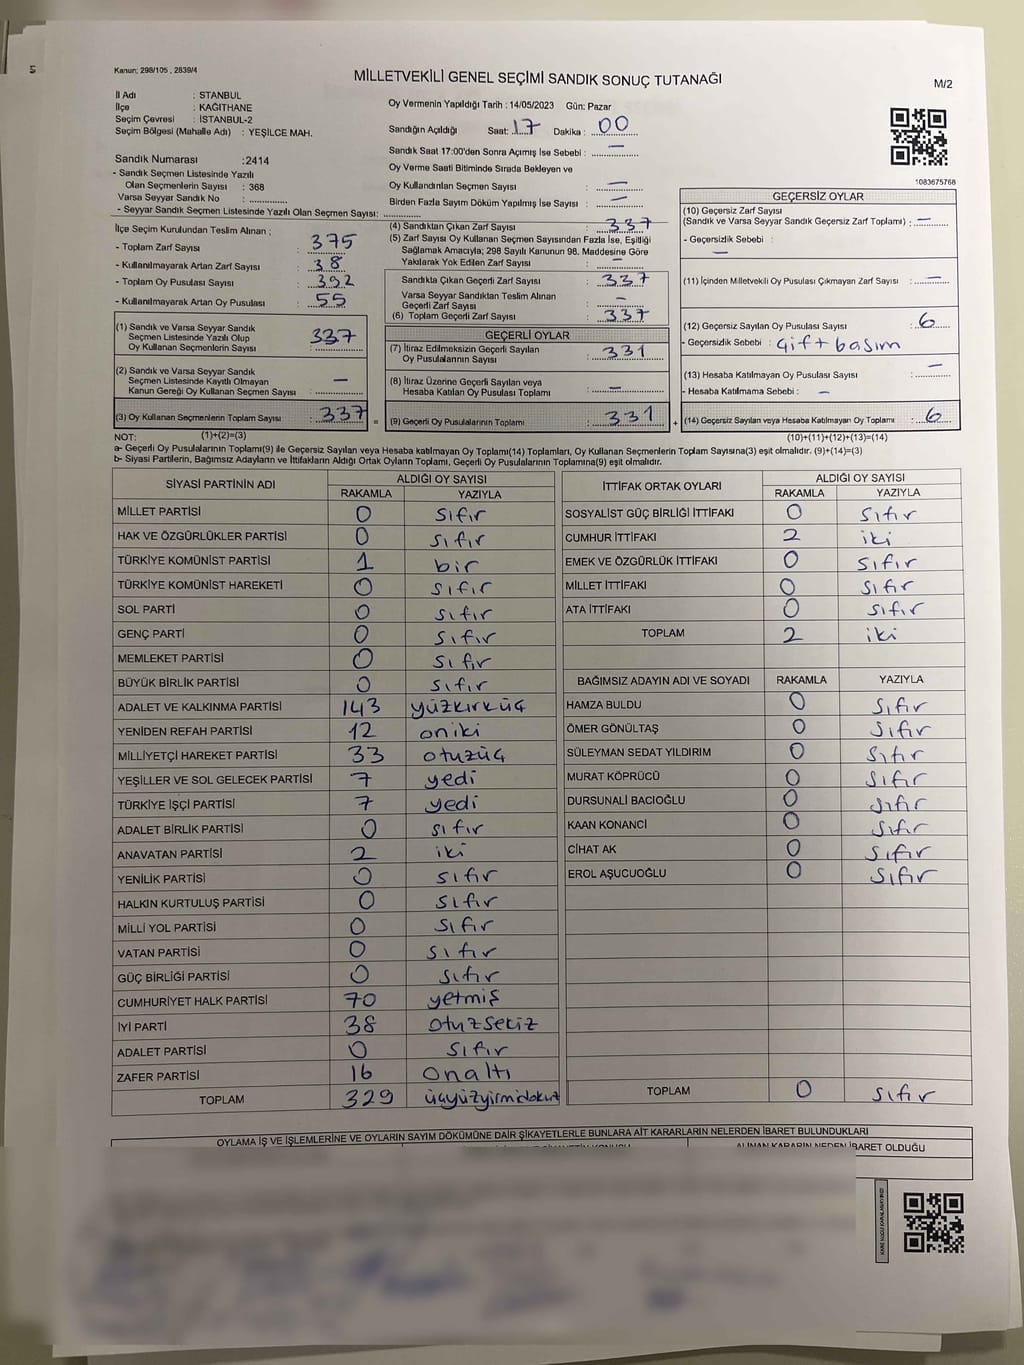 5
Kanun; 298/105 , 2839/4
MİLLETVEKİLİ GENEL SEÇİMİ SANDIK SONUÇ TUTANAĞI
M/2
İl Adı : İSTANBUL
İlçe : KAĞITHANE
Seçim Çevresi : İSTANBUL-2
Seçim Bölgesi (Mahalle Adı) : YEŞİLCE MAH.
Oy Vermenin Yapıldığı Tarih : 14/05/2023 Gün: Pazar
Sandığın Açıldığı Saat: 17 Dakika : 00
Sandık Saat 17:00'den Sonra Açılmış İse Sebebi : —
Oy Verme Saati Bitiminde Sırada Bekleyen ve
Oy Kullandırılan Seçmen Sayısı : —
Birden Fazla Sayım Döküm Yapılmış İse Sayısı : —
1083675768
Sandık Numarası :2414
- Sandık Seçmen Listesinde Yazılı
Olan Seçmenlerin Sayısı : 368
Varsa Seyyar Sandık No :
- Seyyar Sandık Seçmen Listesinde Yazılı Olan Seçmen Sayısı:
İlçe Seçim Kurulundan Teslim Alınan ;
- Toplam Zarf Sayısı : 375
- Kullanılmayarak Artan Zarf Sayısı : 38
- Toplam Oy Pusulası Sayısı : 392
- Kullanılmayarak Artan Oy Pusulası : 55
(1) Sandık ve Varsa Seyyar Sandık
Seçmen Listesinde Yazılı Olup
Oy Kullanan Seçmenlerin Sayısı : 337
(2) Sandık ve Varsa Seyyar Sandık
Seçmen Listesinde Kayıtlı Olmayan
Kanun Gereği Oy Kullanan Seçmen Sayısı : —
(3) Oy Kullanan Seçmenlerin Toplam Sayısı : 337
(4) Sandıktan Çıkan Zarf Sayısı : 337
(5) Zarf Sayısı Oy Kullanan Seçmen Sayısından Fazla İse, Eşitliği
Sağlamak Amacıyla; 298 Sayılı Kanunun 98. Maddesine Göre
Yakılarak Yok Edilen Zarf Sayısı : —
Sandıkta Çıkan Geçerli Zarf Sayısı : 337
Varsa Seyyar Sandıktan Teslim Alınan
Geçerli Zarf Sayısı : —
(6) Toplam Geçerli Zarf Sayısı : 337
GEÇERLİ OYLAR
(7) İtiraz Edilmeksizin Geçerli Sayılan
Oy Pusulalarının Sayısı : 331
(8) İtiraz Üzerine Geçerli Sayılan veya
Hesaba Katılan Oy Pusulası Toplamı : —
= (9) Geçerli Oy Pusulalarının Toplamı : 331
GEÇERSİZ OYLAR
(10) Geçersiz Zarf Sayısı
(Sandık ve Varsa Seyyar Sandık Geçersiz Zarf Toplamı) : —
- Geçersizlik Sebebi :
—
(11) İçinden Milletvekili Oy Pusulası Çıkmayan Zarf Sayısı : —
(12) Geçersiz Sayılan Oy Pusulası Sayısı : 6
- Geçersizlik Sebebi : Çift basım
(13) Hesaba Katılmayan Oy Pusulası Sayısı : —
- Hesaba Katılmama Sebebi : —
+ (14) Geçersiz Sayılan veya Hesaba Katılmayan Oy Toplamı : 6
NOT: (1)+(2)=(3) (10)+(11)+(12)+(13)=(14)
a- Geçerli Oy Pusulalarının Toplamı(9) ile Geçersiz Sayılan veya Hesaba katılmayan Oy Toplamı(14) Toplamları, Oy Kullanan Seçmenlerin Toplam Sayısına(3) eşit olmalıdır. (9)+(14)=(3)
b- Siyasi Partilerin, Bağımsız Adayların ve İttifakların Aldığı Ortak Oyların Toplamı, Geçerli Oy Pusulalarının Toplamına(9) eşit olmalıdır.
SİYASİ PARTİNİN ADI ALDIĞI OY SAYISI
RAKAMLA YAZIYLA
MİLLET PARTİSİ 0 sıfır
HAK VE ÖZGÜRLÜKLER PARTİSİ 0 sıfır
TÜRKİYE KOMÜNİST PARTİSİ 1 bir
TÜRKİYE KOMÜNİST HAREKETİ 0 sıfır
SOL PARTİ 0 sıfır
GENÇ PARTİ 0 sıfır
MEMLEKET PARTİSİ 0 sıfır
BÜYÜK BİRLİK PARTİSİ 0 sıfır
ADALET VE KALKINMA PARTİSİ 143 yüzkırküç
YENİDEN REFAH PARTİSİ 12 oniki
MİLLİYETÇİ HAREKET PARTİSİ 33 otuzüç
YEŞİLLER VE SOL GELECEK PARTİSİ 7 yedi
TÜRKİYE İŞÇİ PARTİSİ 7 yedi
ADALET BİRLİK PARTİSİ 0 sıfır
ANAVATAN PARTİSİ 2 iki
YENİLİK PARTİSİ 0 sıfır
HALKIN KURTULUŞ PARTİSİ 0 sıfır
MİLLİ YOL PARTİSİ 0 sıfır
VATAN PARTİSİ 0 sıfır
GÜÇ BİRLİĞİ PARTİSİ 0 sıfır
CUMHURİYET HALK PARTİSİ 70 yetmiş
İYİ PARTİ 38 otuzsekiz
ADALET PARTİSİ 0 sıfır
ZAFER PARTİSİ 16 onaltı
TOPLAM 329 üçyüzyirmidokuz
İTTİFAK ORTAK OYLARI ALDIĞI OY SAYISI
RAKAMLA YAZIYLA
SOSYALİST GÜÇ BİRLİĞİ İTTİFAKI 0 sıfır
CUMHUR İTTİFAKI 2 iki
EMEK VE ÖZGÜRLÜK İTTİFAKI 0 sıfır
MİLLET İTTİFAKI 0 sıfır
ATA İTTİFAKI 0 sıfır
TOPLAM 2 iki
BAĞIMSIZ ADAYIN ADI VE SOYADI RAKAMLA YAZIYLA
HAMZA BULDU 0 sıfır
ÖMER GÖNÜLTAŞ 0 sıfır
SÜLEYMAN SEDAT YILDIRIM 0 sıfır
MURAT KÖPRÜCÜ 0 sıfır
DURSUNALİ BACIOĞLU 0 sıfır
KAAN KONANCİ 0 sıfır
CİHAT AK 0 sıfır
EROL AŞUCUOĞLU 0 sıfır
TOPLAM 0 sıfır
OYLAMA İŞ VE İŞLEMLERİNE VE OYLARIN SAYIM DÖKÜMÜNE DAİR ŞİKAYETLERLE BUNLARA AİT KARARLARIN NELERDEN İBARET BULUNDUKLARI
ALINAN KARARIN NEDEN İBARET OLDUĞU